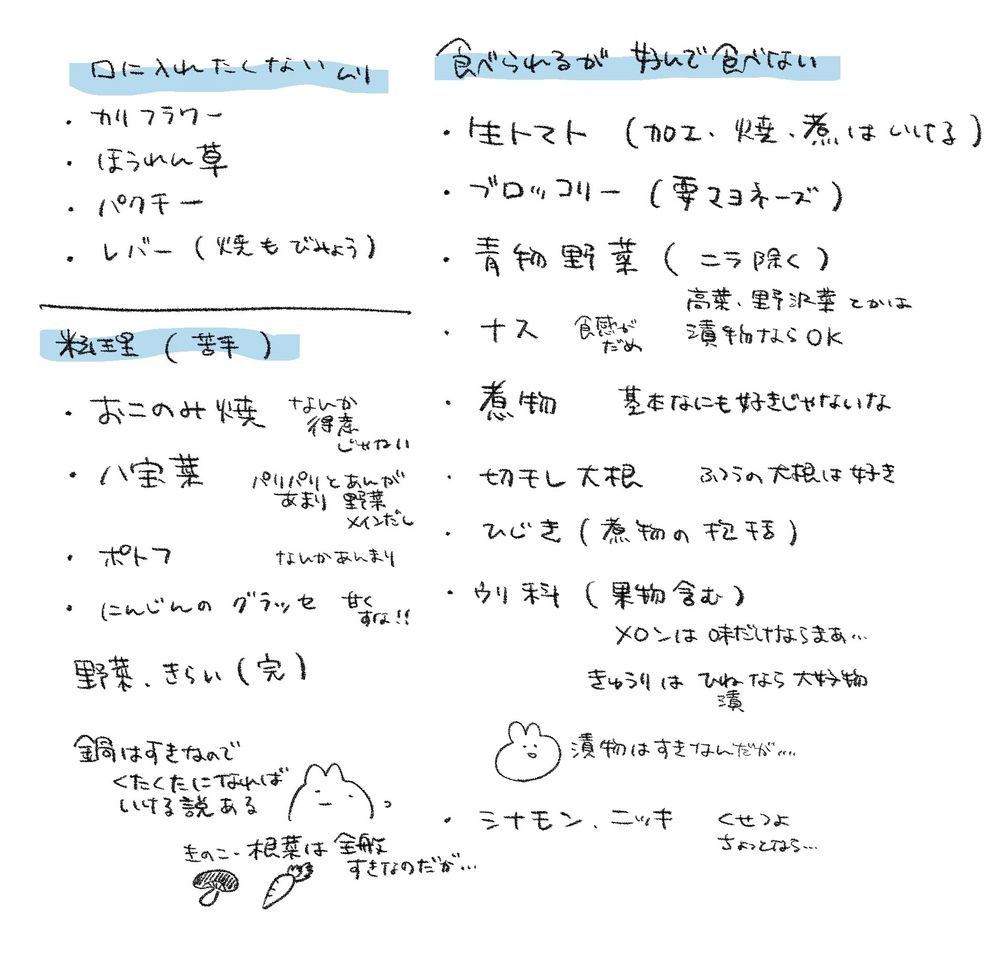 口に入れたくない ムリ
・カリフラワー
・ほうれん草
・パクチー
・レバー（焼もびみょう）
料理（苦手）
・おこのみ焼 なんか
得意
じゃない
・八宝菜 パリパリとあんが
あまり 野菜
メインだし
・ポトフ なんかあんまり
・にんじんの グラッセ 甘く
すな!!
野菜、きらい（完）
鍋はすきなので
くたくたになれば
いける説ある
きのこ・根菜は全般
すきなのだが…
食べられるが 好んで食べない
・生トマト（加工、焼、煮はいける）
・ブロッコリー（要マヨネーズ）
・青物野菜（ニラ除く）
高菜、野沢菜とかは
漬物ならOK
・ナス 食感が
だめ
・煮物 基本なにも好きじゃないな
・切干し大根 ふつうの大根は好き
・ひじき（煮物の包括）
・ウリ科（果物含む）
メロンは味だけならまあ…
きゅうりは ひね漬なら大好物
漬物はすきなんだが…
・シナモン、ニッキ くせつよ
ちょっとなら…